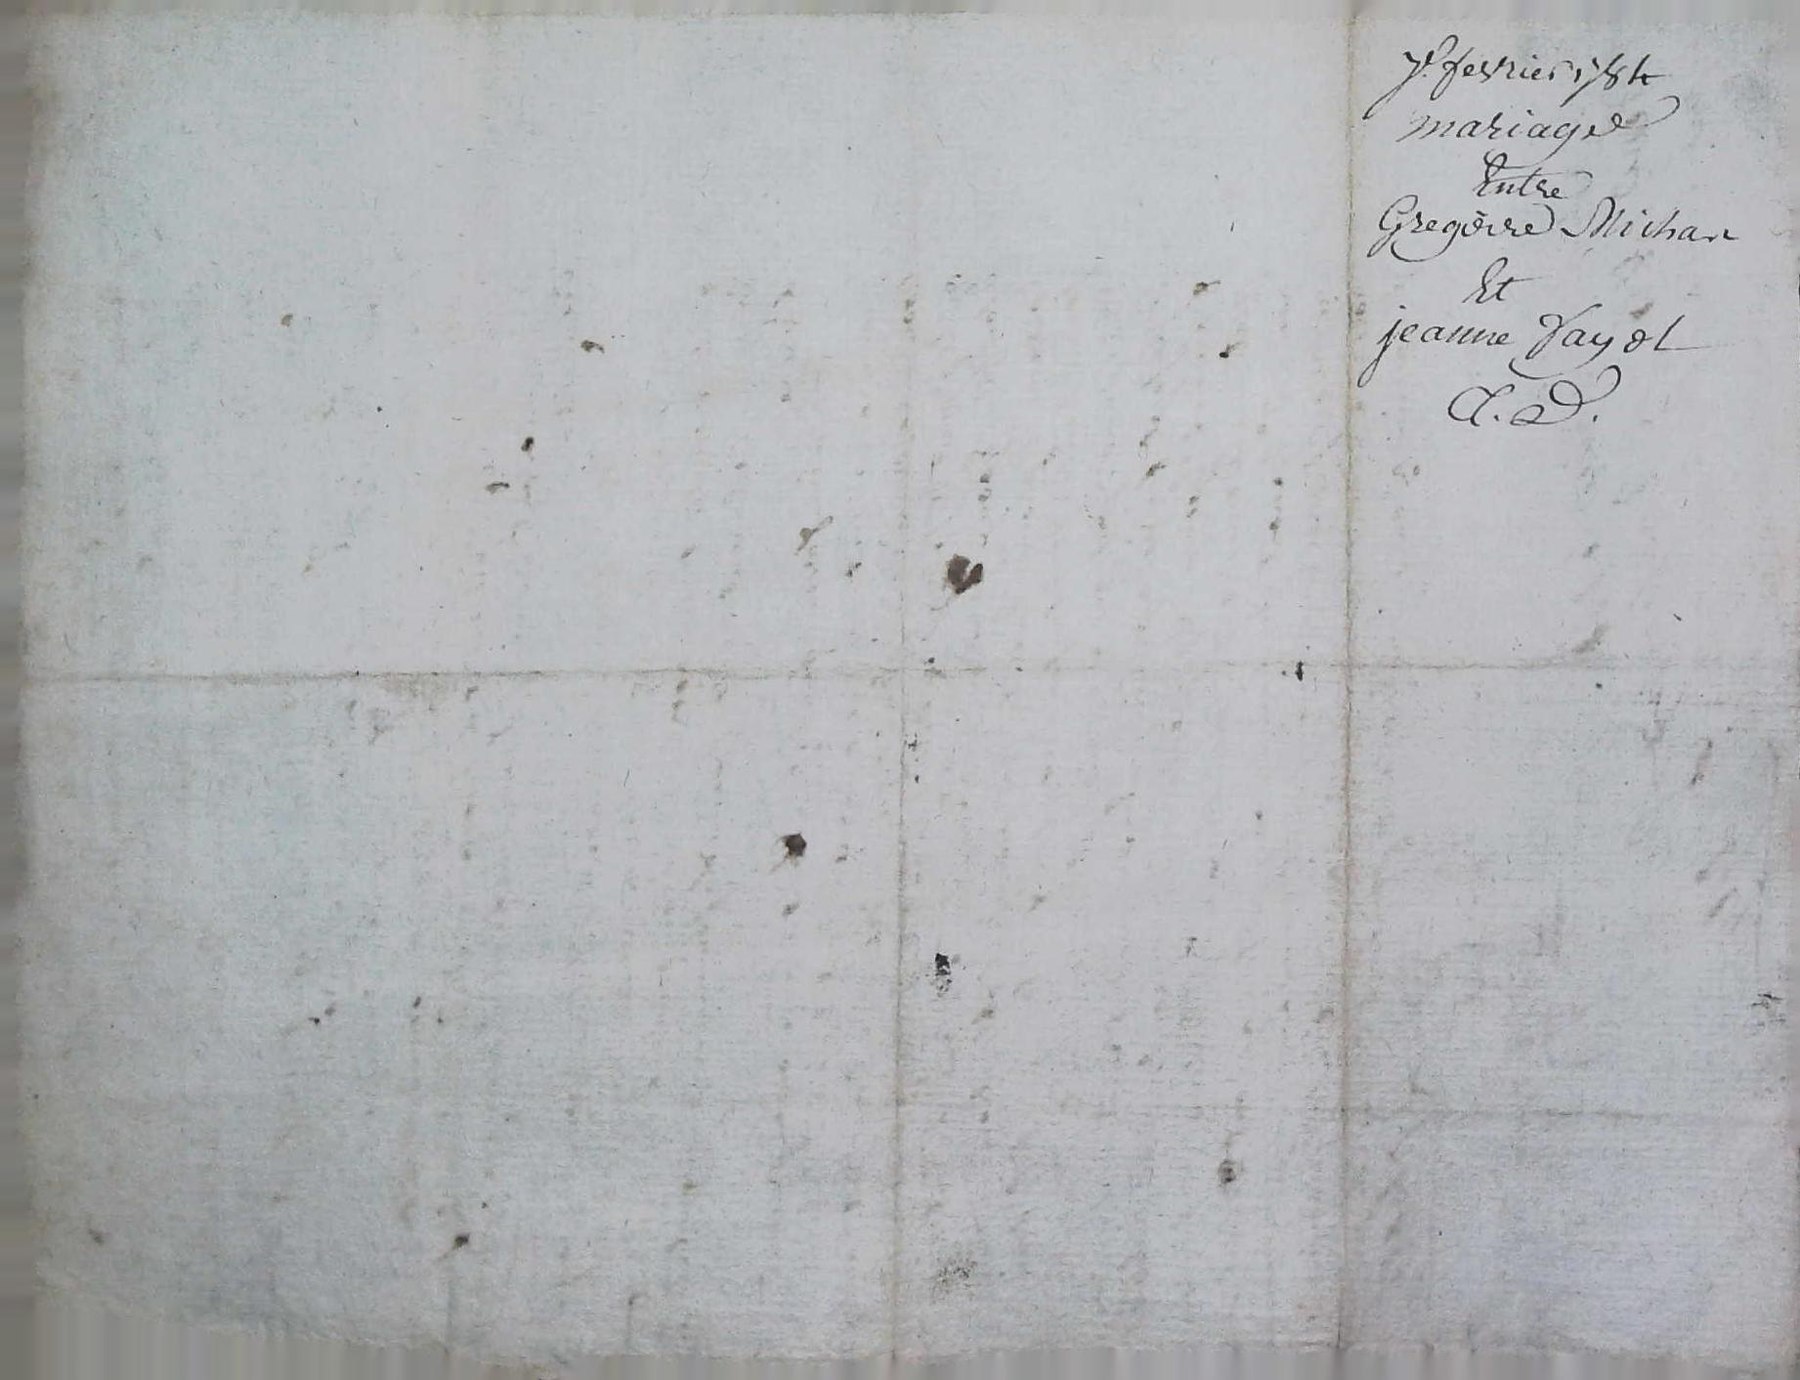 7e. fevrier 1784
mariage
Entre
Gregoire Michan
Et
jeanne Fayol